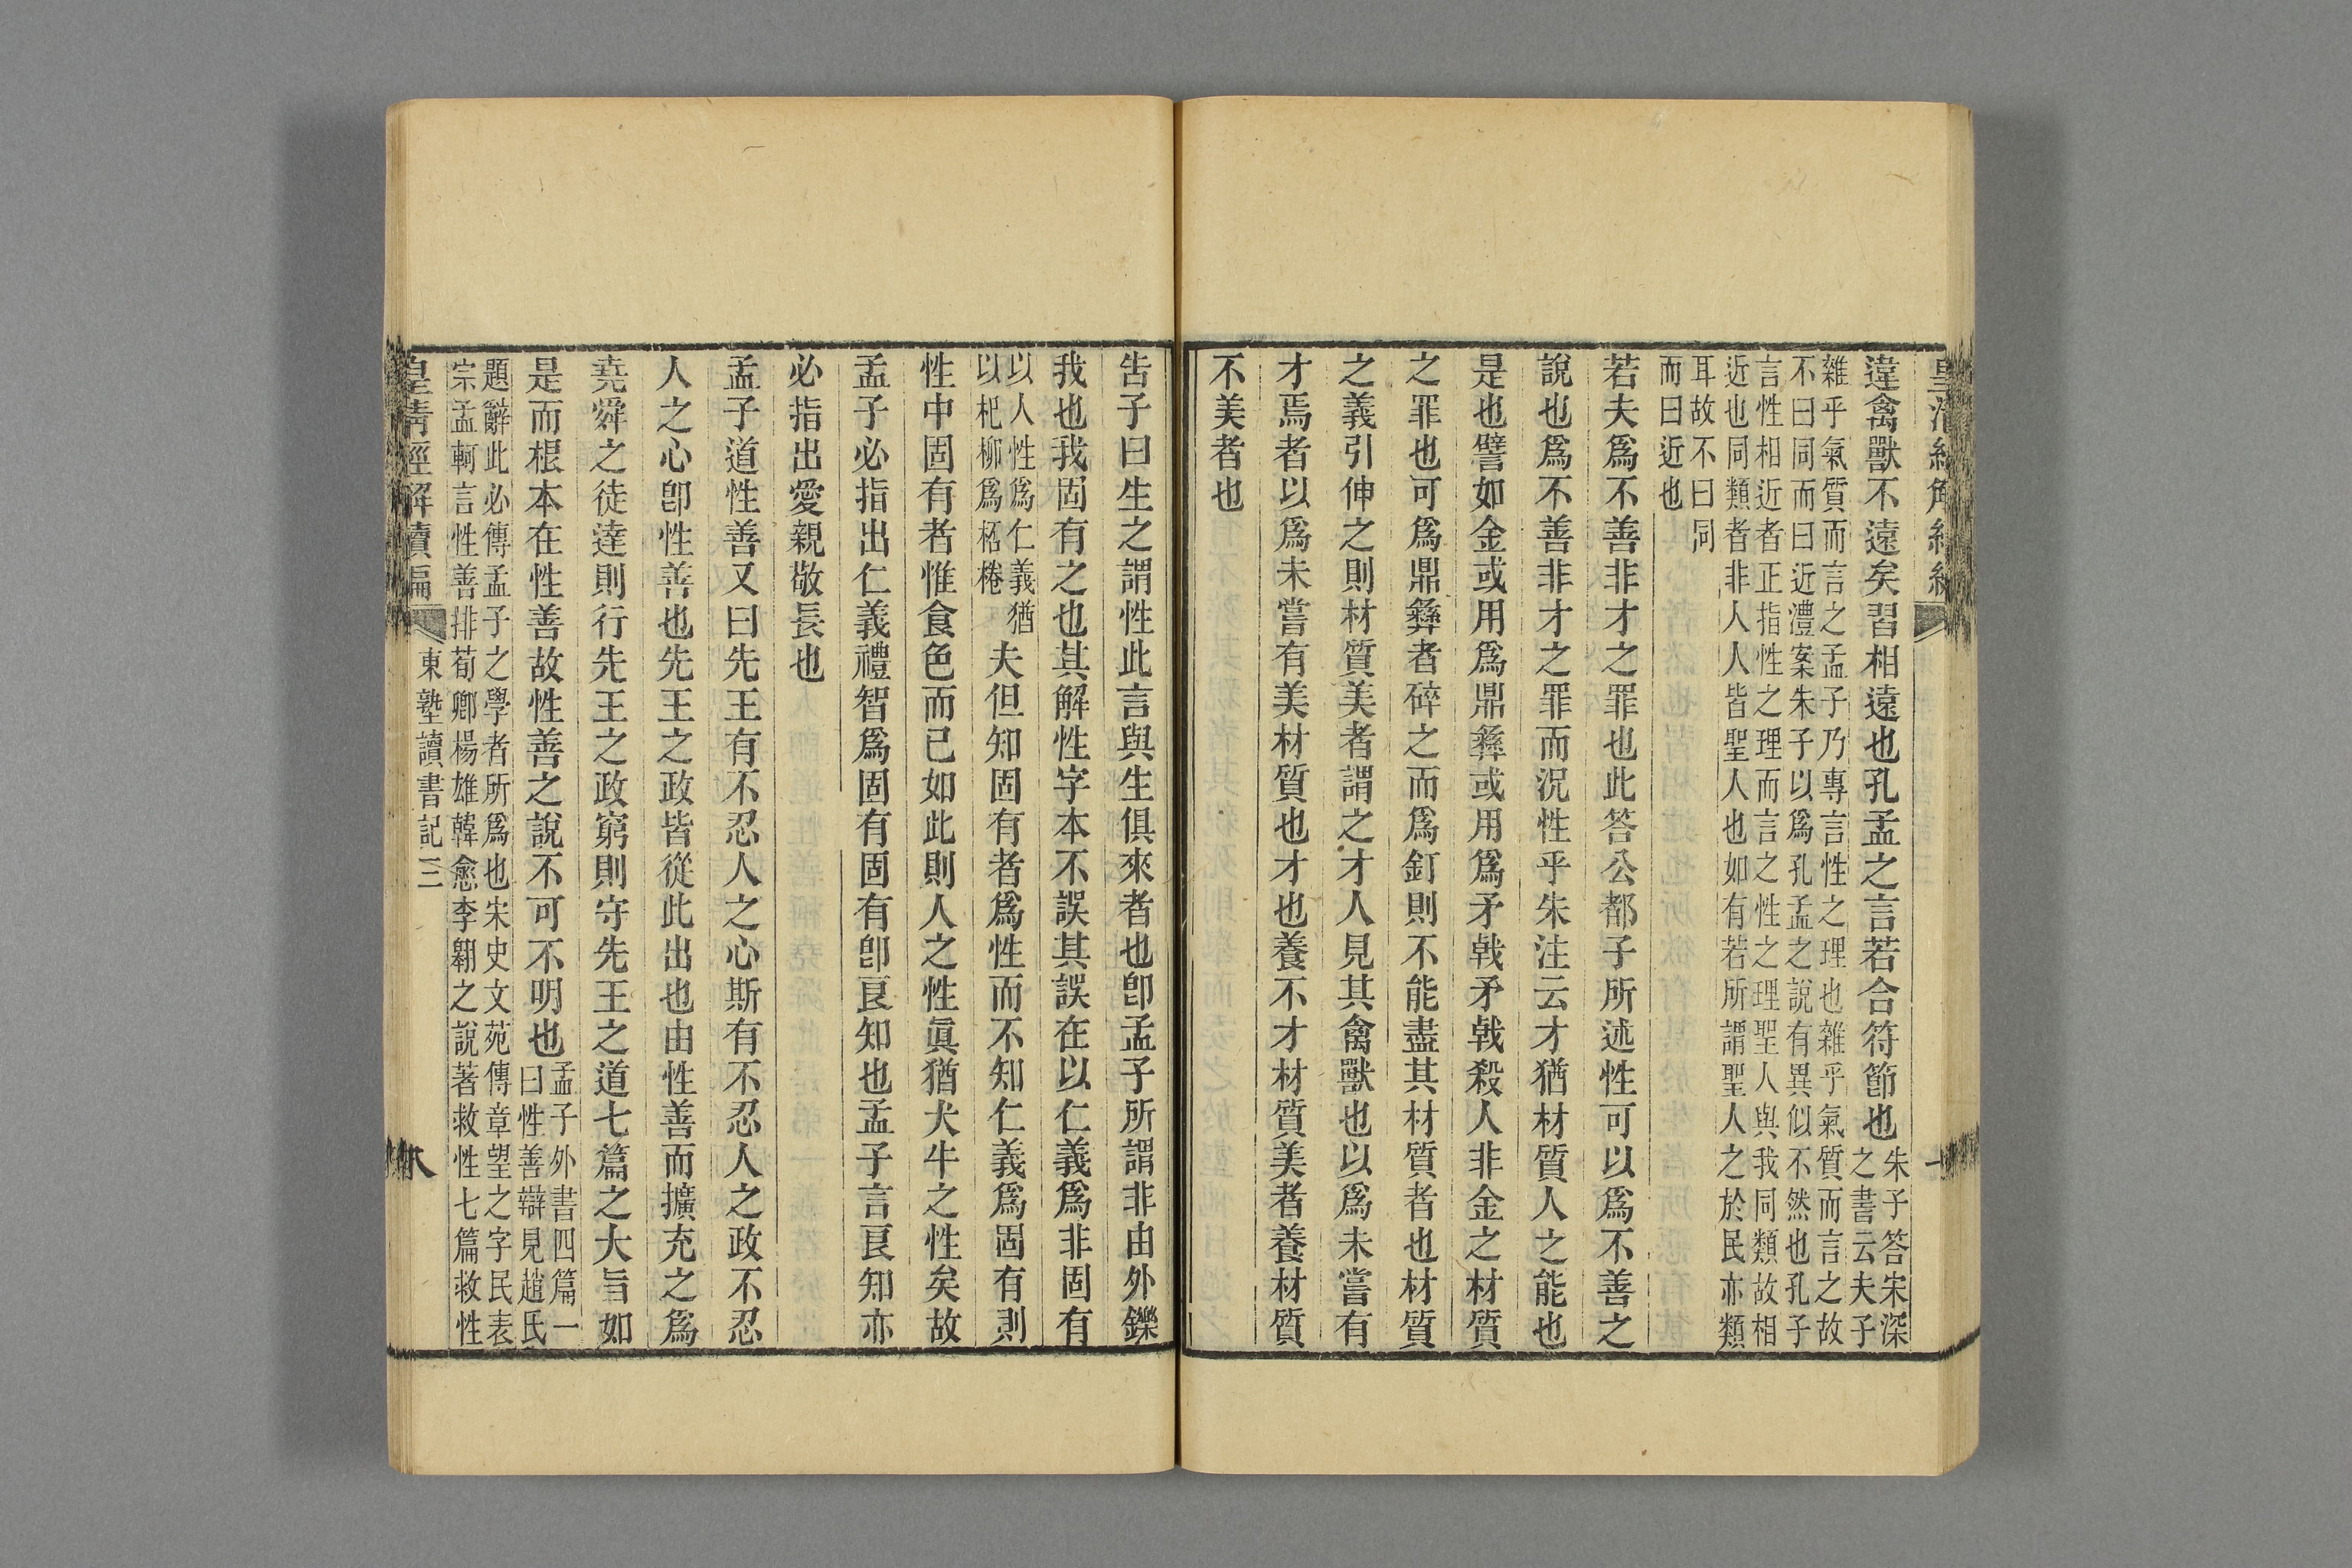 違禽獸不遠矣習相遠也孔孟之言若合符節也
朱子答宋深
之書云夫子
雜乎氣質而言之孟子乃專言性之理也雜乎氣質而言之故
不曰同而曰近澧案朱子以爲孔孟之說有異似不然也孔子
言性相近者正指性之理而言之性之理聖人與我同類故相
近也同類者非人人皆聖人也如有若所謂聖人之於民亦類
耳故不曰同
而曰近也
若夫爲不善非才之罪也此答公都子所述性可以爲不善之
說也爲不善非才之罪而況性乎朱注云才猶材質人之能也
是也譬如金或用爲鼎彝或用爲矛戟矛戟殺人非金之材質
之罪也可爲鼎彝者碎之而爲釘則不能盡其材質者也材質
之義引伸之則材質美者謂之才人見其禽獸也以爲未嘗有
才焉者以爲未嘗有美材質也才也養不才材質美者養材質
不美者也
告子曰生之謂性此言與生俱來者也卽孟子所謂非由外鑠
我也我固有之也其解性字本不誤其誤在以仁義爲非固有
以人性爲仁義猶
以杞柳爲桮棬
夫但知固有者爲性而不知仁義爲固有則
性中固有者惟食色而已如此則人之性眞猶犬牛之性矣故
孟子必指出仁義禮智爲固有固有卽良知也孟子言良知亦
必指出愛親敬長也
孟子道性善又曰先王有不忍人之心斯有不忍人之政不忍
人之心卽性善也先王之政皆從此出也由性善而擴充之爲
堯舜之徒達則行先王之政窮則守先王之道七篇之大旨如
是而根本在性善故性善之說不可不明也
孟子外書四篇一
曰性善辯見趙氏
題辭此必傳孟子之學者所爲也宋史文苑傳章望之字民表
宗孟軻言性善排荀卿楊雄韓愈李翺之說著救性七篇救性
皇清經解續編
東塾讀書記三
八